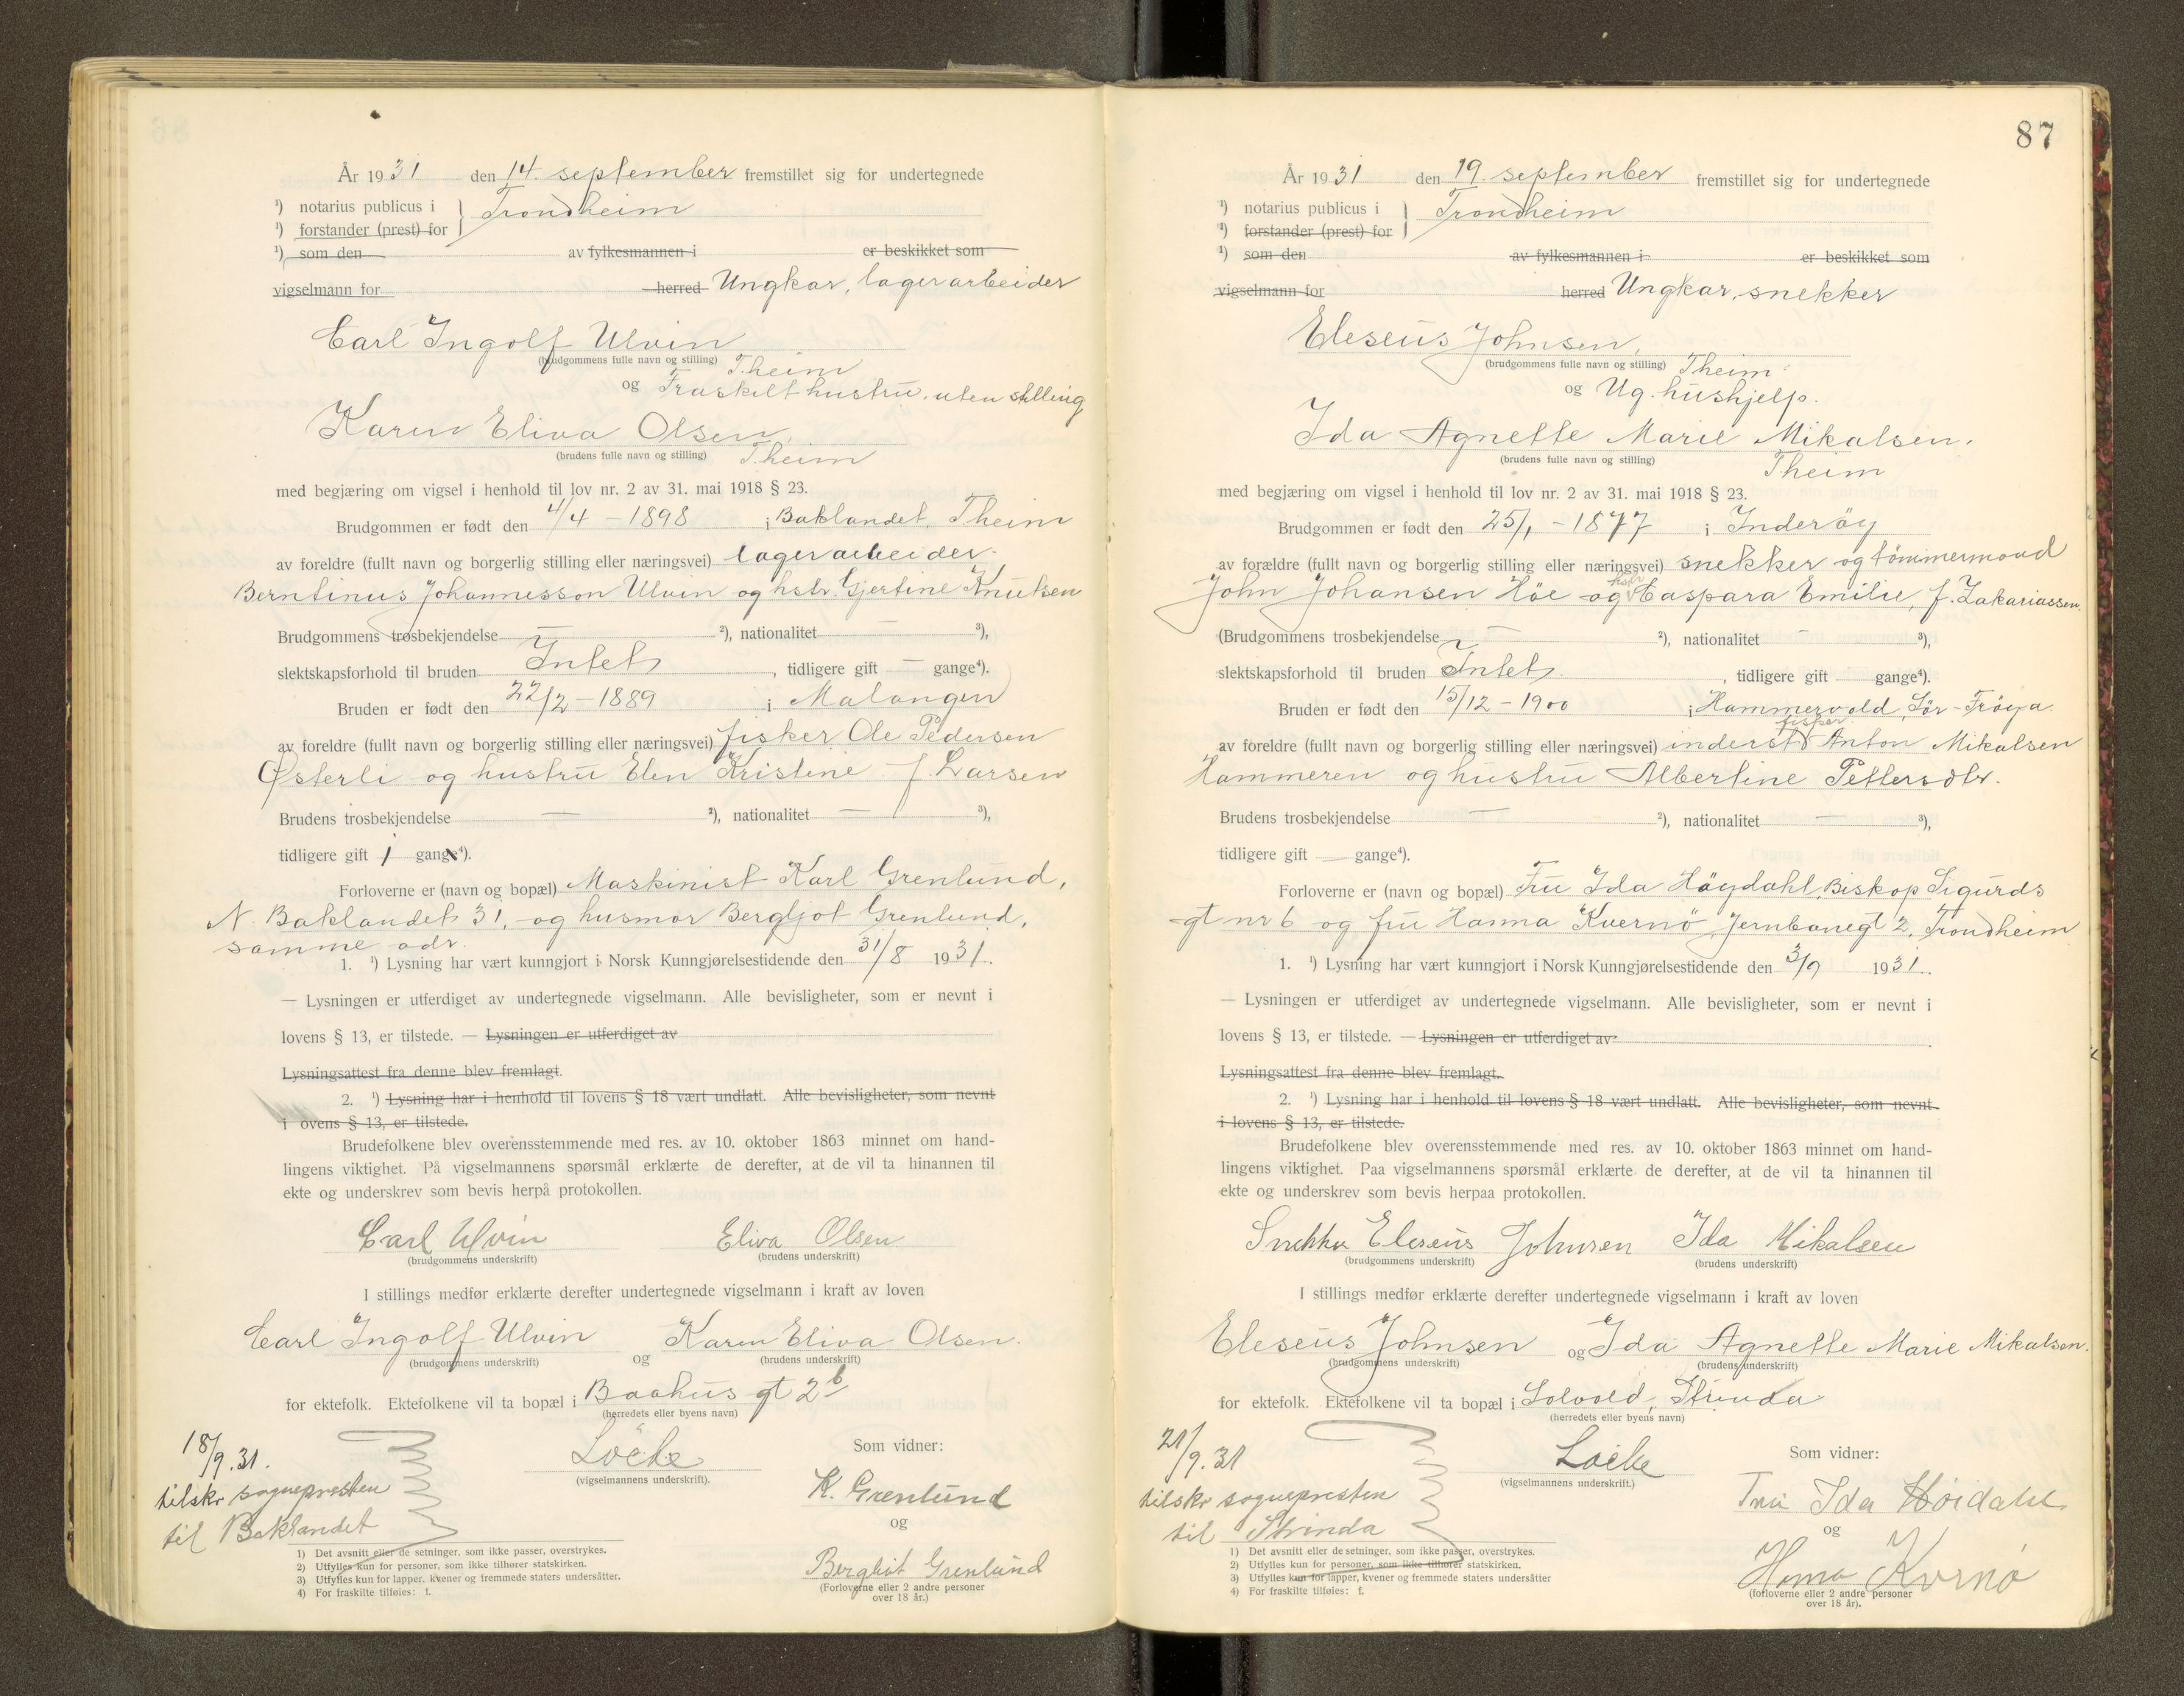 År 1931 den 14. september fremstillet sig for undertegnede
¹) notarius publicus i } Trondheim
¹) forstander (prest) for
¹) som den av fylkesmannen i er beskikket som
vigselmann for herred Ungkar, lagerarbeider
Carl Ingolf Ulvin
(brudgommens fulle navn og stilling) T.heim
og Fraskilt hustru, uten stilling
Karen Eliva Olsen,
(brudens fulle navn og stilling) T.heim
med begjæring om vigsel i henhold til lov nr. 2 av 31. mai 1918 § 23.
Brudgommen er født den 4/4 - 1898 i Baklandet, Theim
av foreldre (fullt navn og borgerlig stilling eller næringsvei) lagerarbeider
Berntinus Johannesson Ulvin og hstr. Gjertine Knutsen
Brudgommens trosbekjendelse — ²), nationalitet — ³),
slektskapsforhold til bruden Intet, tidligere gift — gange⁴).
Bruden er født den 22/2 - 1889 i Malangen
av foreldre (fullt navn og borgerlig stilling eller næringsvei) fisker Ole Pedersen
Østerli og hustru Elen Kristine f. Larsen
Brudens trosbekjendelse — ²), nationalitet — ³),
tidligere gift 1 gange⁴).
Forloverne er (navn og bopæl) Maskinist Karl Grenlund,
N. Baklandet 31, og husmor Bergljot Grenlund,
samme adr.
1. ¹) Lysning har vært kunngjort i Norsk Kunngjørelsestidende den 31/8 1931.
— Lysningen er utferdiget av undertegnede vigselmann. Alle bevisligheter, som er nevnt i
lovens § 13, er tilstede. — Lysningen er utferdiget av
Lysningsattest fra denne blev fremlagt.
2. ¹) Lysning har i henhold til lovens § 18 vært undlatt. Alle bevisligheter, som nevnt
i ovens § 13, er tilstede.
Brudefolkene blev overensstemmende med res. av 10. oktober 1863 minnet om hand-
lingens viktighet. På vigselmannens spørsmål erklærte de derefter, at de vil ta hinannen til
ekte og underskrev som bevis herpå protokollen.
Carl Ulvin Eliva Olsen
(brudgommens underskrift) (brudens underskrift)
I stillings medfør erklærte derefter undertegnede vigselmann i kraft av loven
Carl Ingolf Ulvin og Karen Eliva Olsen.
(brudgommens underskrift) (brudens underskrift)
for ektefolk. Ektefolkene vil ta bopæl i Baahus gt 2b
(herredets eller byens navn)
18/9.31.
tilskr sognepresten
til Baklandet
Löcke
(vigselmannens underskrift).
Som vidner:
K. Grenlund
og
Bergliot Grenlund
(Forloverne eller 2 andre personer
over 18 år.)
1) Det avsnitt eller de setninger, som ikke passer, overstrykes.
2) Utfylles kun for personer, som ikke tilhører statskirken.
3) Utfylles kun for lapper, kvener og fremmede staters undersåtter.
4) For fraskilte tilføies: f.
87
År 1931 den 19. september fremstillet sig for undertegnede
¹) notarius publicus i } Trondheim
¹) forstander (prest) for
¹) som den av fylkesmannen i er beskikket som
vigselmann for herred Ungkar, snekker
Eleseus Johnsen,
(brudgommens fulle navn og stilling) Theim
og Ug. hushjelp.
Ida Agnette Marie Mikalsen.
(brudens fulle navn og stilling) Theim
med begjæring om vigsel i henhold til lov nr. 2 av 31. mai 1918 § 23.
Brudgommen er født den 25/1 - 1877 i Inderöy
av forældre (fullt navn og borgerlig stilling eller næringsvei) snekker og tömmermand
John Johansen Höe og hstr Caspara Emilie, f. Zakariassen.
(Brudgommens trosbekjendelse — ²), nationalitet — ³),
slektskapsforhold til bruden Intet, tidligere gift gange⁴).
Bruden er født den 15/12 - 1900 i Hammervold, Sör-Fröya.
av foreldre (fullt navn og borgerlig stilling eller næringsvei) inderst fisker Anton Mikalsen
Hammeren og hustru Albertine Pettersdtr.
Brudens trosbekjendelse — ²), nationalitet — ³),
tidligere gift — gange⁴).
Forloverne er (navn og bopæl) Fru Ida Höydahl, Biskop Sigurds
gt nr 6 og fru Hanna Kvernö, Jernbanegt 2, Trondheim
1. ¹) Lysning har vært kunngjort i Norsk Kunngjørelsestidende den 3/9 1931.
— Lysningen er utferdiget av undertegnede vigselmann. Alle bevisligheter, som er nevnt i
lovens § 13, er tilstede. — Lysningen er utferdiget av
Lysningsattest fra denne blev fremlagt.
2. ¹) Lysning har i henhold til lovens § 18 vært undlatt. Alle bevisligheter, som nevnt
i lovens § 13, er tilstede.
Brudefolkene blev overensstemmende med res. av 10. oktober 1863 minnet om hand-
lingens viktighet. Paa vigselmannens spørsmål erklærte de derefter, at de vil ta hinannen til
ekte og underskrev som bevis herpaa protokollen.
Snekker Eleseus Johnsen Ida Mikalsen
(brudgommens underskrift) (brudens underskrift)
I stillings medfør erklærte derefter undertegnede vigselmann i kraft av loven
Eleseus Johnsen og Ida Agnette Marie Mikalsen.
(brudgommens underskrift) (brudens underskrift)
for ektefolk. Ektefolkene vil ta bopæl i Solvold, Strinda
(herredets eller byens navn)
21/9.31
tilskr sognepresten
til Strinda
Löcke
(vigselmannens underskrift.)
Som vidner:
Fru Ida Höidahl
og
Hanna Kvernö
(forloverne eller 2 andre personer
over 18 år).
1) Det avsnitt eller de setninger, som ikke passer, overstrykes.
2) Utfylles kun for personer, som ikke tilhører statskirken.
3) Utfylles kun for lapper, kvener og fremmede staters undersåtter
4) For fraskilte tilføies: f.